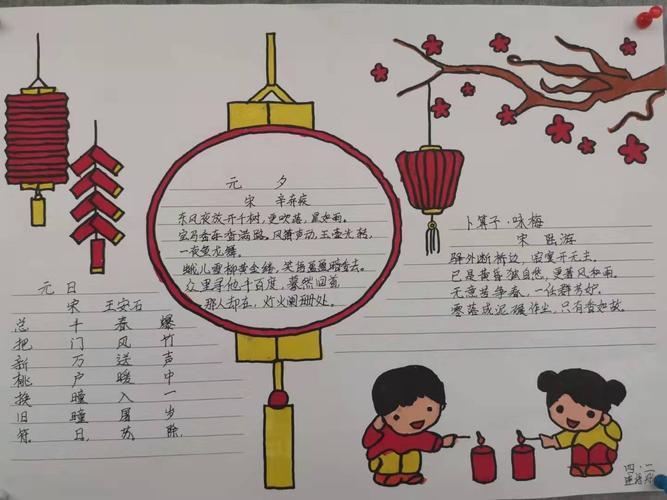 元日
宋 王安石
爆竹声中一岁除,
春风送暖入屠苏.
千门万户曈曈日,
总把新桃换旧符.
元 夕
宋 辛弃疾
东风夜放开千树,更吹落,星如雨。
宝马香车香满路。风箫声动,玉壶光转,
一夜鱼龙舞。
蛾儿雪柳黄金缕,笑语盈盈暗香去。
众里寻他千百度,蓦然回首
那人却在,灯火阑珊处。
卜算子·咏梅
宋 陆游
驿外断桥边,寂寞开无主。
已是黄昏独自愁,更著风和雨。
无意苦争春,一任群芳妒。
零落成泥碾作尘,只有香如故。
四·二